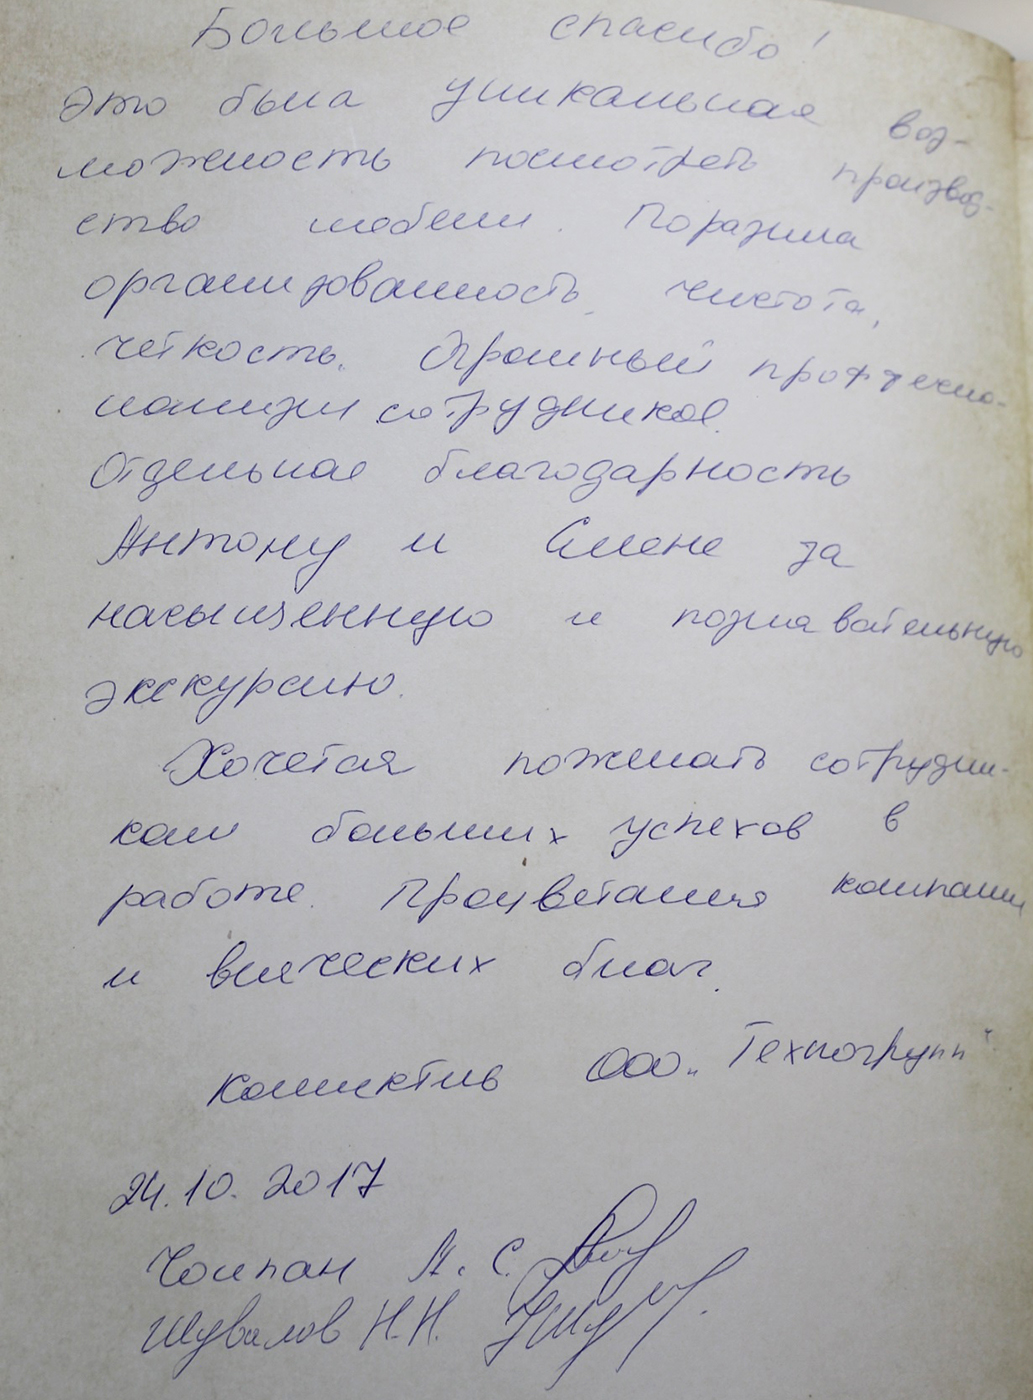 Большое спасибо!
Это была уникальная воз-
можность посмотреть производ-
ство мебели. Поразила
организованность, чистота,
чёткость. Огромный профессио-
нализм сотрудников.
Отдельная благодарность
Антону и Елене за
насыщенную и познавательную
экскурсию.
Хочется пожелать сотрудни-
кам больших успехов в
работе. Процветания компании
и всяческих благ.
Коллектив ООО „Техногрупп“
24.10.2017
А. С.
Шувалов Н.Н.